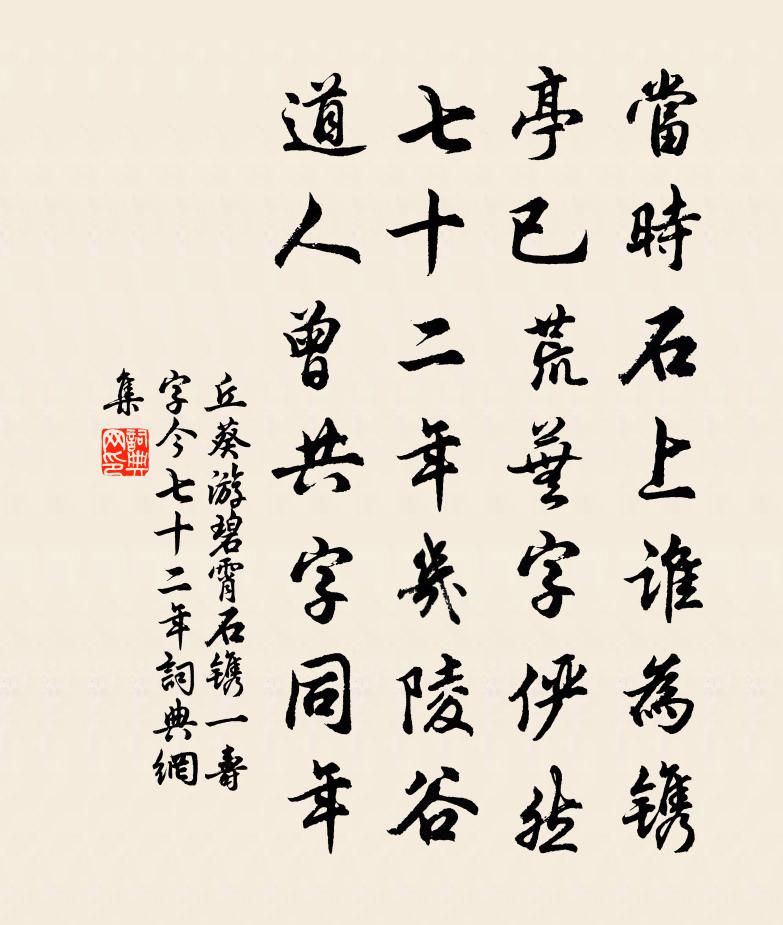 當時石上誰為镌
亭已荒蕪字俨然
七十二年幾陵谷
道人曾共字同年
丘葵游碧霄石镌一壽
字今七十二年詞典網
集
詞典
网印